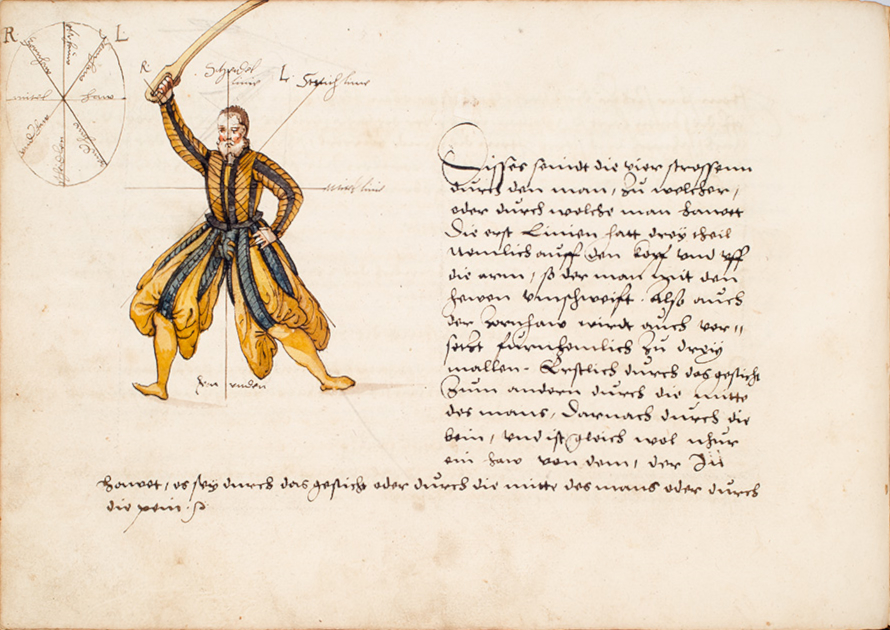 R
L
mittel
haw
R
Schedel
linie
L
Streich linie
mittel linie
von unden
Disses seindt die vier strossenn
durch den man, zu welcher,
oder durch welche man hawett
Die erst Linien hatt drey theil
Nemlich auff den kopf vnd vff
die arm, so der man mit den
hewen vmschweift. Also auch
der zornhaw wirdt auch ver=
setzt furnhemlich zu dreÿ
mallen. Erstlich durch das gesicht
Zum andern durch die mitte
des mans, Darnach durch die
bein, vnd ist gleich wol nhur
ein haw von dem, der Zu
hawet, es seÿ durch das gesicht oder durch die mitte des mans oder durch
die pein.